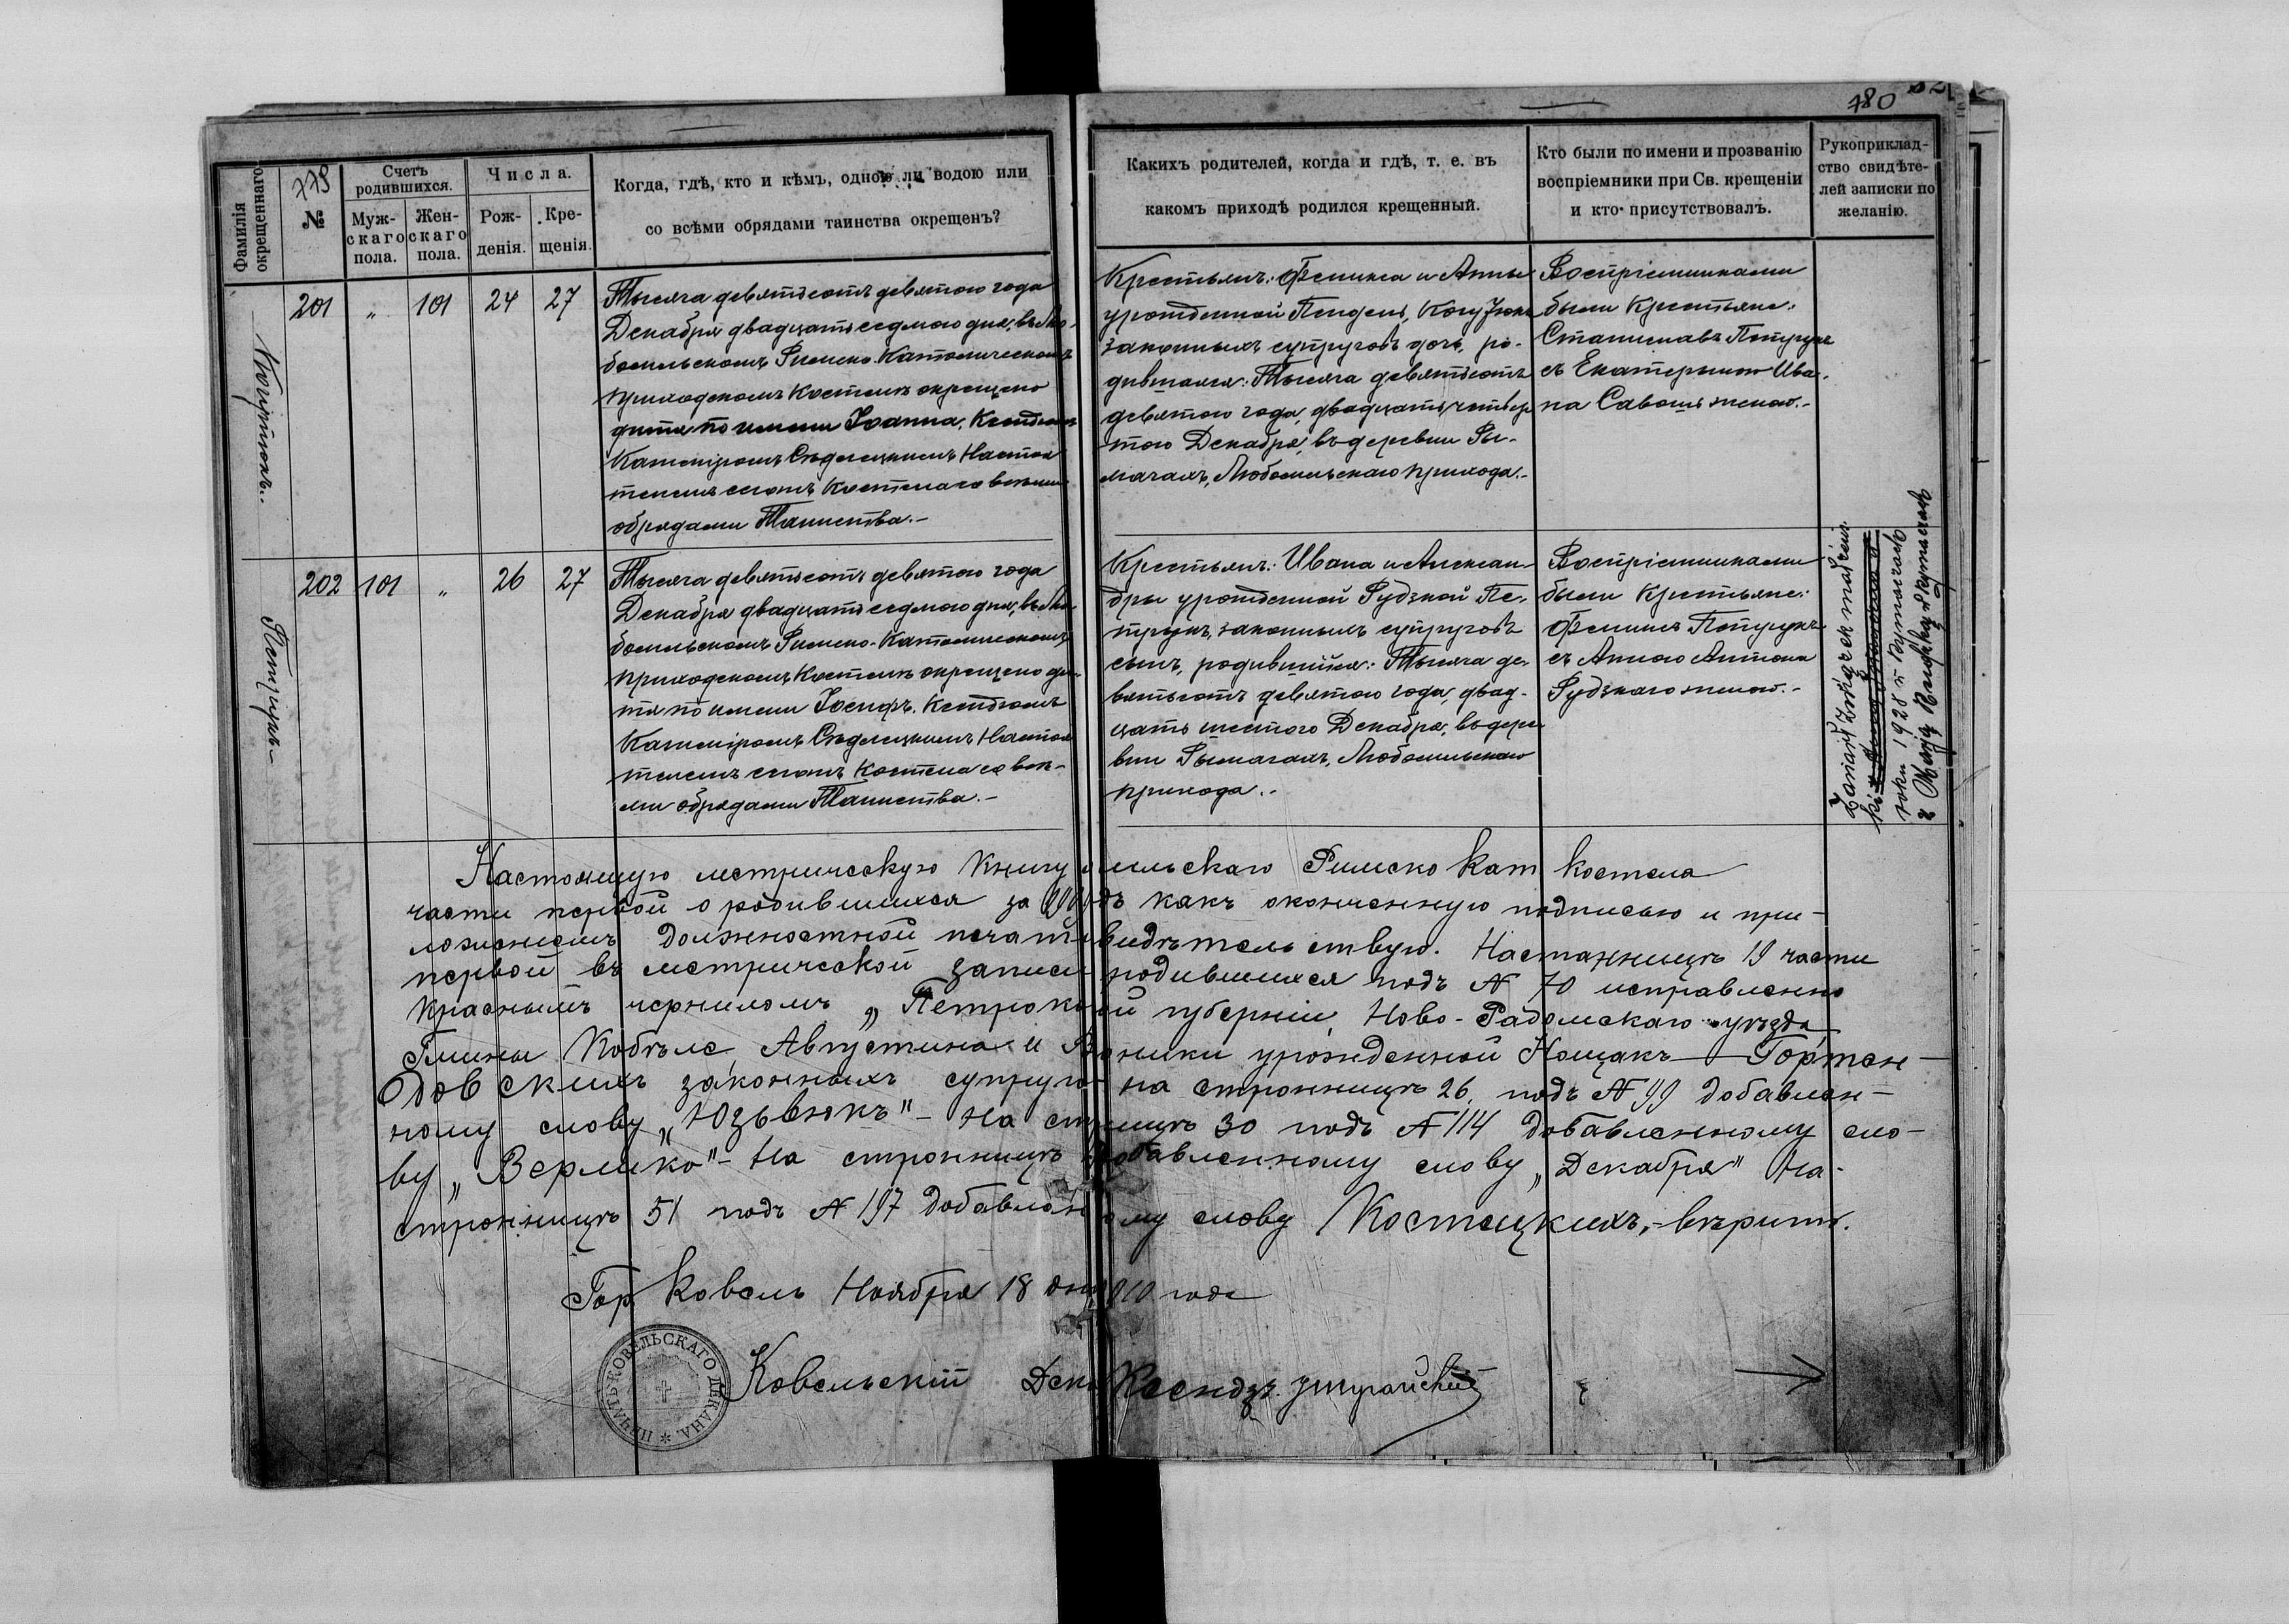 779
780
Фамилія окрещеннаго
№
Счетъ родившихся.
Муж-скаго пола.
Жен-скаго пола.
Числа.
Рож-денія.
Кре-щенія.
Когда, гдѣ, кто и кѣмъ, одною ли водою или
со всѣми обрядами таинства окрещенъ?
Какихъ родителей, когда и гдѣ, т. е. въ
какомъ приходѣ родился крещенный.
Кто были по имени и прозванію
воспріемники при Св. крещеніи
и кто присутствовалъ.
Рукоприклад-
ство свидѣте-
лей записки по
желанію.
201 „ 101 24 27
Тысяча девятьсотъ девятого года
Декабря двадцать седмого дня, въ Лю-
бомльскомъ Римско-Католическомъ
приходскомъ Костелѣ окрещено
дитя по имени Іоанна, Ксендзомъ
Казимiромъ Сѣдлецкимъ Настоя
телемъ сегожъ Костела со всѣми
обрядами Таинства.-
Крестьянъ: Феликса и Анны
урожденной
законныхъ супруговъ дочь, ро-
дившаяся: Тысяча девятьсотъ
девятого года, двадцать четвер
того Декабря, въ деревни Ры-
мачахъ, Любомльскаго прихода.-
Воспріемниками
были Крестьяне:
Станиславъ
съ Екатериною Ива-
на Савошъ женою.-
202 101 „ 26 27
Петручукъ
Тысяча девятьсотъ девятого года
Декабря двадцать седмого дня, въ Лю-
бомльскомъ Римско-Католическомъ
приходскомъ Костелѣ окрещено ди-
тя по имени Іосифъ, Ксендзомъ
Казимiромъ Сѣдлецкимъ Настоя
телемъ сегожъ Костела со всѣ-
ми обрядами Таинства.-
Крестьянъ: Ивана и Алексан-
дры урожденной Рудзкой Пе-
законныхъ супруговъ
сынъ, родившійся: Тысяча де-
вятьсотъ девятого года, двад-
цать шестого Декабря, въ дере-
вни Рымачахъ, Любомльскаго
прихода.-
Воспріемниками
были Крестьяне:
Феликсъ
съ Анною Антона
Рудзкаго женою.-
Zawarł związek małżeń.
roku 1928 w Rymaczach
z Marją
Настоящую метрическую книгу мльскаго Римско Кат костела
части первой о родившихся за какъ оконченную подписью и при-
ложеніемъ должностной печати видѣтельствую. На странницѣ 19 части
первой въ метрической записи родившихся подъ № 70 исправленно
краснымъ черниломъ „Петроко ой губерніи, Ново-Радомскаго уѣзда,
Гмины Кобѣле, Августина и урожденной Нощакъ — Гортен-
довскихъ законныхъ супруго на странницѣ 26, подъ № 99 добавлен-
ному слову „Юзьвюкъ"- На ст ницѣ 30 подъ № 114 добавленному сло-
ву „Вермко"- На странницѣ добавленному слову „Декабря" На-
странницѣ 51 подъ № 197 добавлен ому слову Костецкихъ,- вѣрить.
Гор. Ковель Ноября 18 дня 910 года
Ковельскій Дека Ксендзъ
ПЕЧАТЬ КОВЕЛЬСКАГО ДЕКАНА.